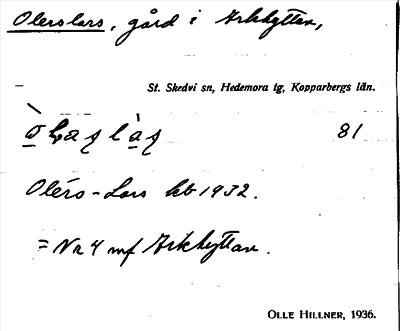 Olerslars, gård i Arkhyttan,
St. Skedvi sn, Hedemora tg, Kopparbergs län.
81
Olérs-Lars kb 1932.
= Nr 4 mf Arkhyttan.
OLLE HILLNER, 1936.